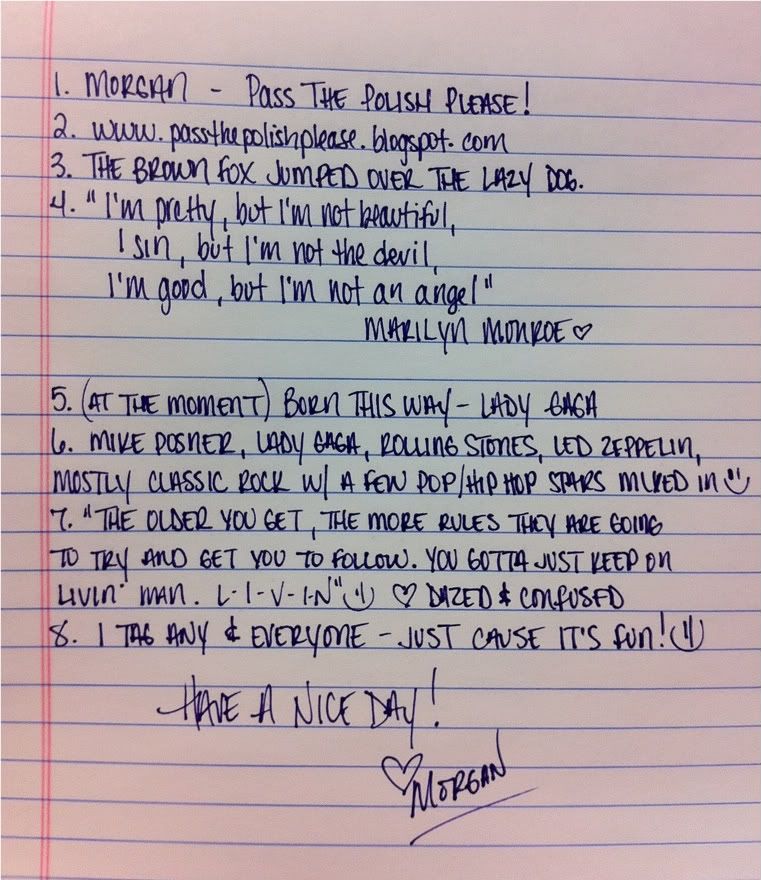 1. MORGAN - PASS THE POLISH PLEASE!
2. www.passthepolishplease.blogspot.com
3. THE BROWN FOX JUMPED OVER THE LAZY DOG.
4. "I'm pretty, but I'm not beautiful,
I sin, but I'm not the devil,
I'm good, but I'm not an angel"
MARILYN MONROE ♡
5. (AT THE MOMENT) BORN THIS WAY - LADY GAGA
6. MIKE POSNER, LADY GAGA, ROLLING STONES, LED ZEPPELIN,
MOSTLY CLASSIC ROCK W/ A FEW POP/HIP HOP STARS MIXED IN
7. "THE OLDER YOU GET, THE MORE RULES THEY ARE GOING
TO TRY AND GET YOU TO FOLLOW. YOU GOTTA JUST KEEP ON
LIVIN' MAN. L-I-V-I-N" ♡ DAZED & CONFUSED
8. I TAG ANY & EVERYONE - JUST CAUSE IT'S FUN!
HAVE A NICE DAY!
♡ MORGAN